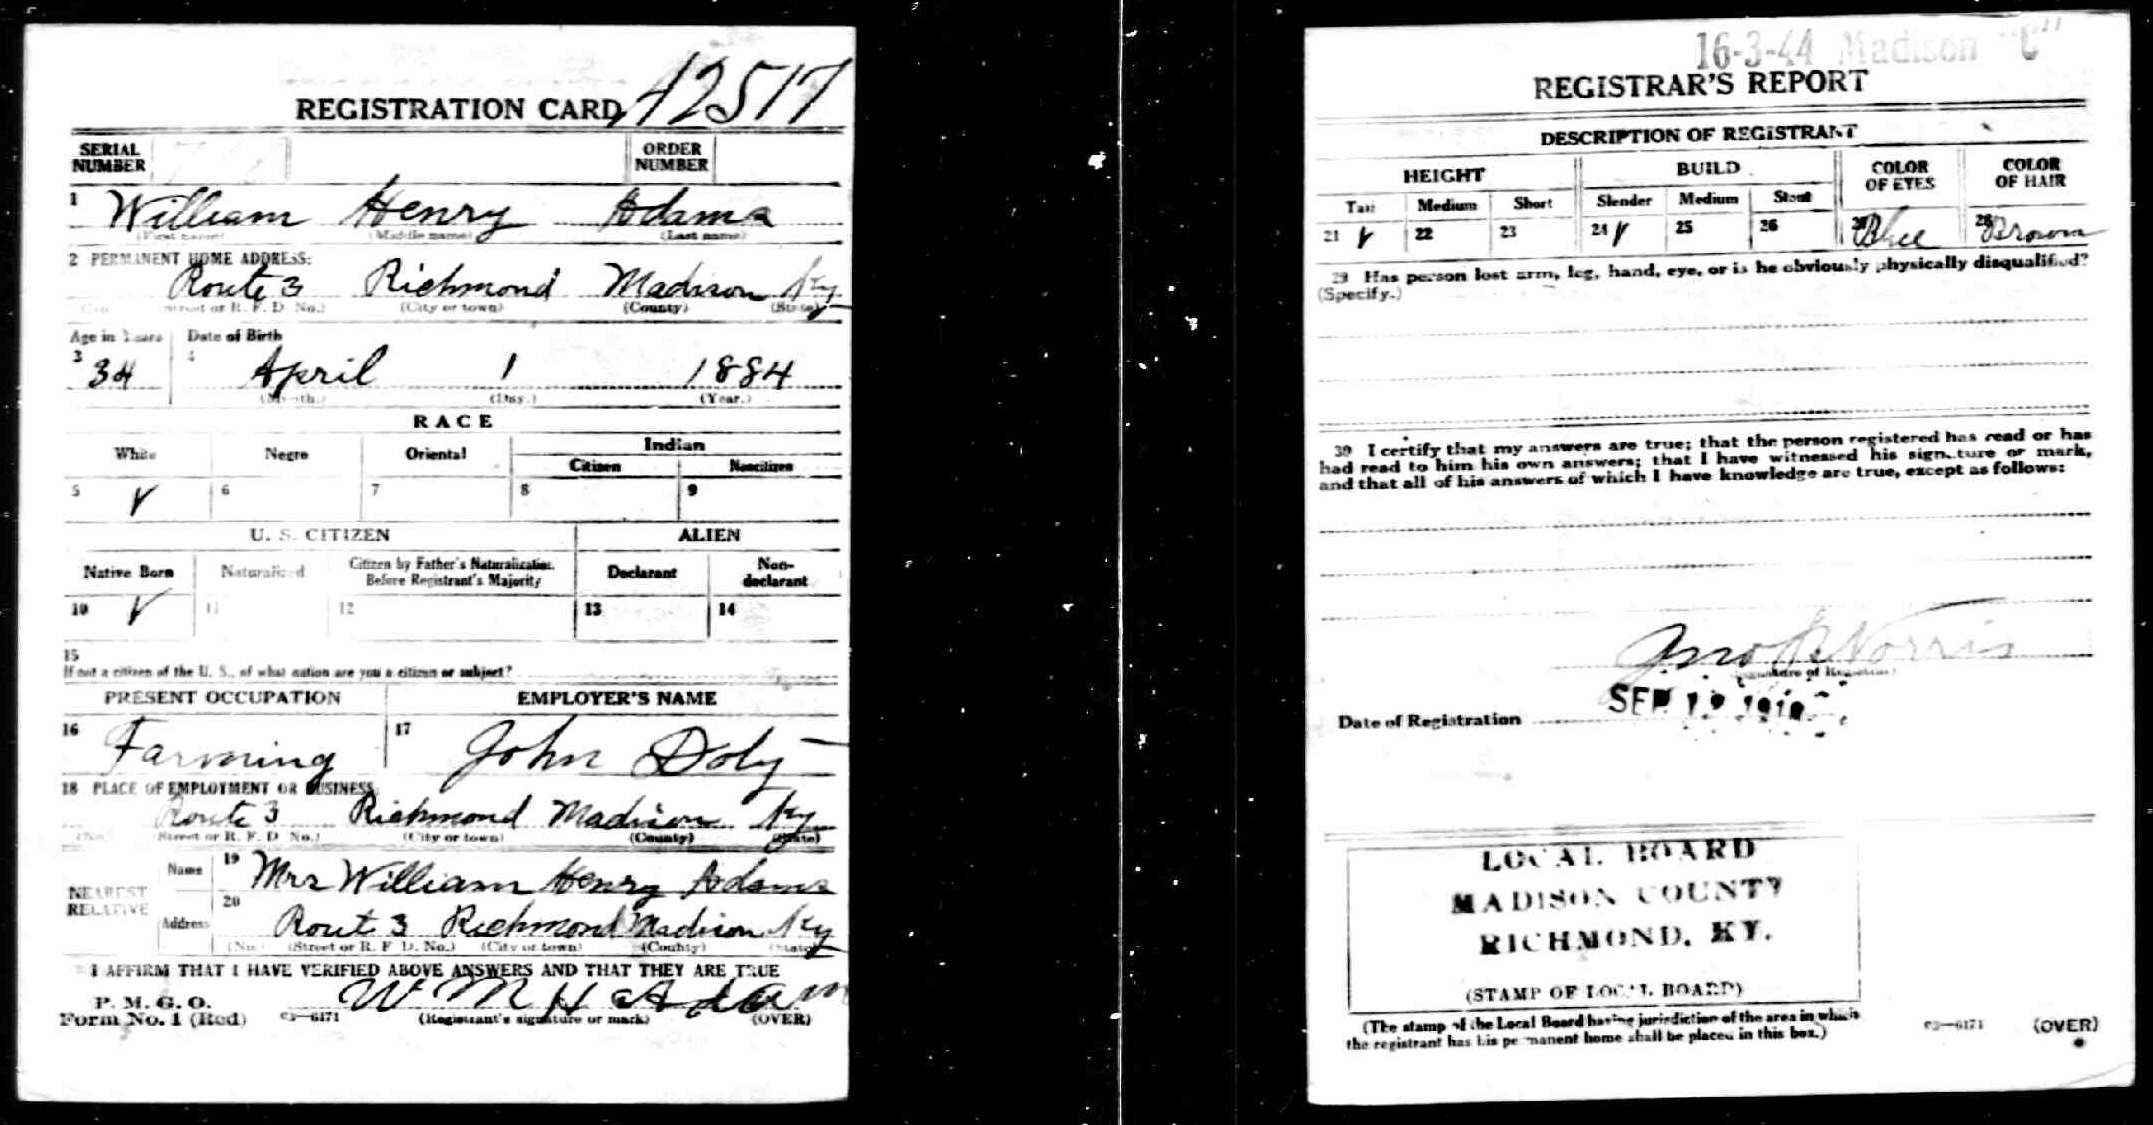 REGISTRATION CARD
SERIAL NUMBER
ORDER NUMBER
1 William Henry Adams
(First name) (Middle name) (Last name)
2 PERMANENT HOME ADDRESS:
Route 3 Richmond Madison Ky
(Street or R. F. D. No.) (City or town) (County) (State)
Age in Years Date of Birth
3 34 4 April 1 1884
(Month.) (Day.) (Year.)
RACE
White Negro Oriental Indian
Citizen Noncitizen
5 ✓ 6 7 8 9
U. S. CITIZEN ALIEN
Native Born Naturalized Citizen by Father's Naturalization Before Registrant's Majority Declarant Non-declarant
10 ✓ 11 12 13 14
15
If not a citizen of the U. S., of what nation are you a citizen or subject?
PRESENT OCCUPATION EMPLOYER'S NAME
16 Farming 17 John
18 PLACE OF EMPLOYMENT OR BUSINESS:
Route 3 Richmond Madison Ky
(No.) (Street or R. F. D. No.) (City or town) (County) (State)
NEAREST RELATIVE
Name 19 Mrs William Henry Adams
Address 20 Rout 3 Richmond Madison Ky
(No.) (Street or R. F. D. No.) (City or town) (County) (State)
I AFFIRM THAT I HAVE VERIFIED ABOVE ANSWERS AND THAT THEY ARE TRUE
P. M. G. O.
Form No. 1 (Red) 03—6171 W M H Adam
(Registrant's signature or mark) (OVER)
16-3-44 Madison "C"
REGISTRAR'S REPORT
DESCRIPTION OF REGISTRANT
HEIGHT BUILD COLOR OF EYES COLOR OF HAIR
Tall Medium Short Slender Medium Stout
21 ✓ 22 23 24 ✓ 25 26 27 Blue 28 Brown
29 Has person lost arm, leg, hand, eye, or is he obviously physically disqualified?
(Specify.)
30 I certify that my answers are true; that the person registered has read or has
had read to him his own answers; that I have witnessed his signature or mark,
and that all of his answers of which I have knowledge are true, except as follows:
Norris
(Signature of Registrar)
Date of Registration SEP 1918
LOCAL BOARD
MADISON COUNTY
RICHMOND, KY.
(STAMP OF LOCAL BOARD)
(The stamp of the Local Board having jurisdiction of the area in which
the registrant has his permanent home shall be placed in this box.)
03—6171 (OVER)